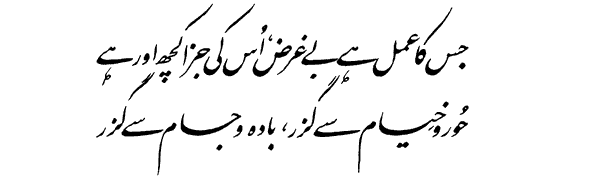 جس کا عمل ہے بے غرض، اُس کی جزا کچھ اور ہے
حُور و خِیام سے گزر، بادہ و جام سے گزر